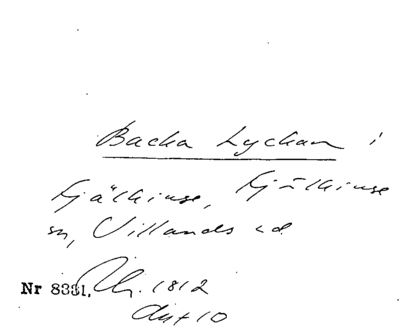 Backa Lyckan i
Fjälkinge, Fjälkinge
sn, Villands hd
Nr 8331. Lh. 1812
Akt 10